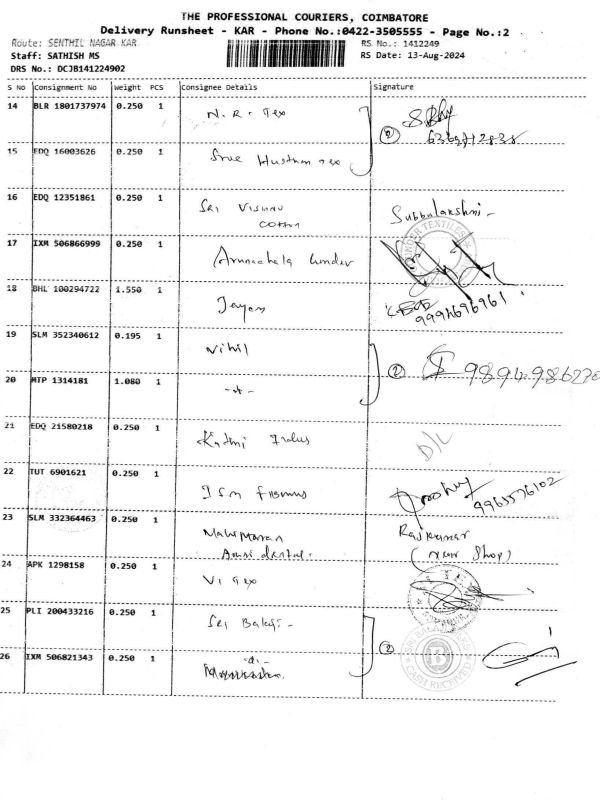 THE PROFESSIONAL COURIERS, COIMBATORE
Delivery Runsheet - KAR - Phone No.:0422-3505555 - Page No.:2
Route: SENTHIL NAGAR KAR
RS No.: 1412249
Staff: SATHISH MS
RS Date: 13-Aug-2024
DRS No.: DCJB141224902
S No Consignment No Weight PCS Consignee Details Signature
14 BLR 1801737974 0.250 1 N. R. Tex
②
15 EDQ 16003626 0.250 1 Sree
16 EDQ 12351861 0.250 1 Sri Vishnu Subbulakshmi
Cotton
17 IXM 506866999 0.250 1 Arunachala
TEXTILES
18 BHL 100294722 1.550 1 Jayam
9994696961
19 SLM 352340612 0.195 1 Nihil
②
20 MTP 1314181 1.080 1 -"-
21 EDQ 21580218 0.250 1 D/L
22 TUT 6901621 0.250 1
9965576102
23 SLM 332364463 0.250 1 Rajkumar
(near Shop)
24 APK 1298158 0.250 1 Vi Tex
25 PLI 200433216 0.250 1 Sri Balaji -
②
26 IXM 506821343 0.250 1 -"-
B
CASH RECEIVED